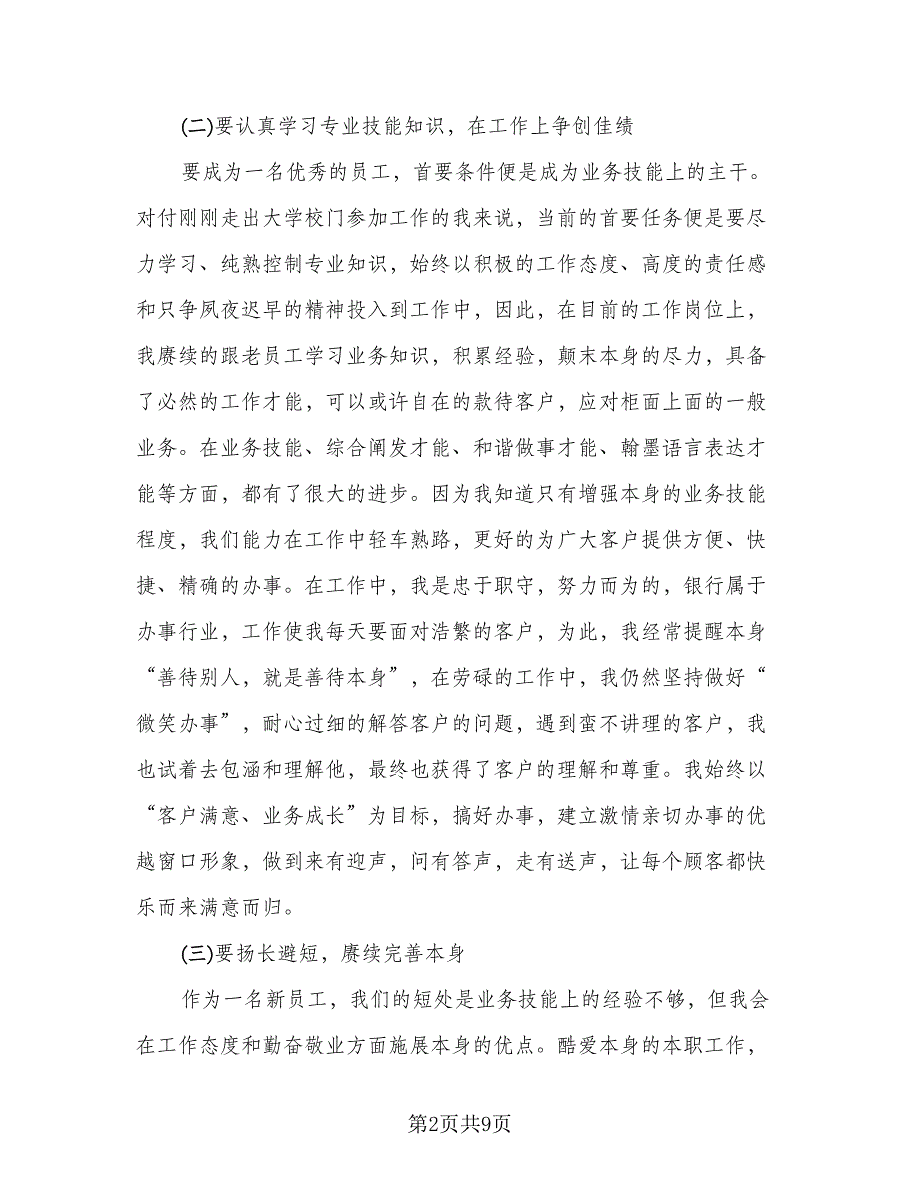 (二)要认真学习专业技能知识，在工作上争创佳绩
要成为一名优秀的员工，首要条件便是成为业务技能上的主干。
对付刚刚走出大学校门参加工作的我来说，当前的首要任务便是要尽
力学习、纯熟控制专业知识，始终以积极的工作态度、高度的责任感
和只争夙夜迟早的精神投入到工作中，因此，在目前的工作岗位上，
我赓续的跟老员工学习业务知识，积累经验，颠末本身的尽力，具备
了必然的工作才能，可以或许自在的款待客户，应对柜面上面的一般
业务。在业务技能、综合阐发才能、和谐做事才能、翰墨语言表达才
能等方面，都有了很大的进步。因为我知道只有增强本身的业务技能
程度，我们能力在工作中轻车熟路，更好的为广大客户提供方便、快
捷、精确的办事。在工作中，我是忠于职守，努力而为的，银行属于
办事行业，工作使我每天要面对浩繁的客户，为此，我经常提醒本身
“善待别人，就是善待本身”，在劳碌的工作中，我仍然坚持做好“
微笑办事”，耐心过细的解答客户的问题，遇到蛮不讲理的客户，我
也试着去包涵和理解他，最终也获得了客户的理解和尊重。我始终以
“客户满意、业务成长”为目标，搞好办事，建立激情亲切办事的优
越窗口形象，做到来有迎声，问有答声，走有送声，让每个顾客都快
乐而来满意而归。
(三)要扬长避短，赓续完善本身
作为一名新员工，我们的短处是业务技能上的经验不够，但我会
在工作态度和勤奋敬业方面施展本身的优点。酷爱本身的本职工作，
第2页共9页